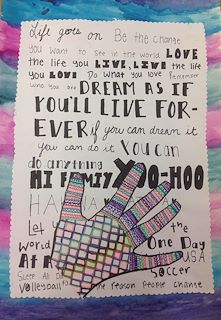 Life goes on Be the change
you want to see in the world LOVE
the life you LIVE, LIVE the life
you LOVE Do what you love Remember
who you are DREAM AS IF
YOU'LL LIVE FOR-
EVER if you can dream it
you can do it YOU can
do anything
HI FAMILY YOO-HOO
HA
Let the
World One Day
At USA
Soccer
Volleyball the reason people change